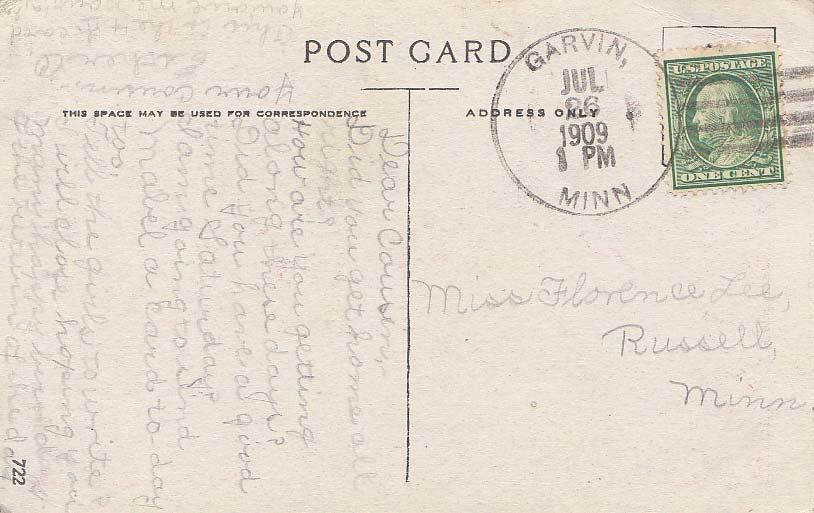 POST CARD
THIS SPACE MAY BE USED FOR CORRESPONDENCE
ADDRESS ONLY
GARVIN,
JUL
26
1909
1 PM
MINN
U.S. POSTAGE
ONE CENT
Miss Florence Lee,
Russell,
Minn.
Dear Cousin,
Did you get home all
right?
How are you getting
along these days?
Did you have a good
time Saturday?
I am going to send
Mabel a card to-day
too.
Tell the girls to write.
I will close hoping you
many happy
of the day
Your Cousin
This is the card
722